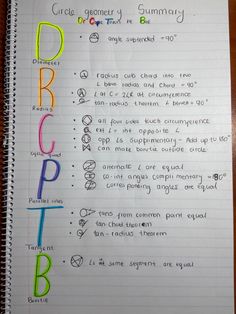 Circle geometry Summary
Dr Cape Train to Bat
D
Diameter
angle subtended = 90°
R
Radius
radius cuts chord into two
∠ between radius and chord = 90°
∠ at C = 2∠ at circumference
tan-radius theorem ∠ between = 90°
C
Cyclic quad
all four sides touch circumference
ext ∠ = int opposite ∠
opp ∠s supplimentary - Add up to 180°
can make outside circle
P
Parallel lines
alternate ∠ are equal
co-int angles complimentary = 180°
corresponding angles are equal
T
Tangent
tans from common point equal
tan chord theorem
tan-radius theorem
B
∠s in same segment are equal